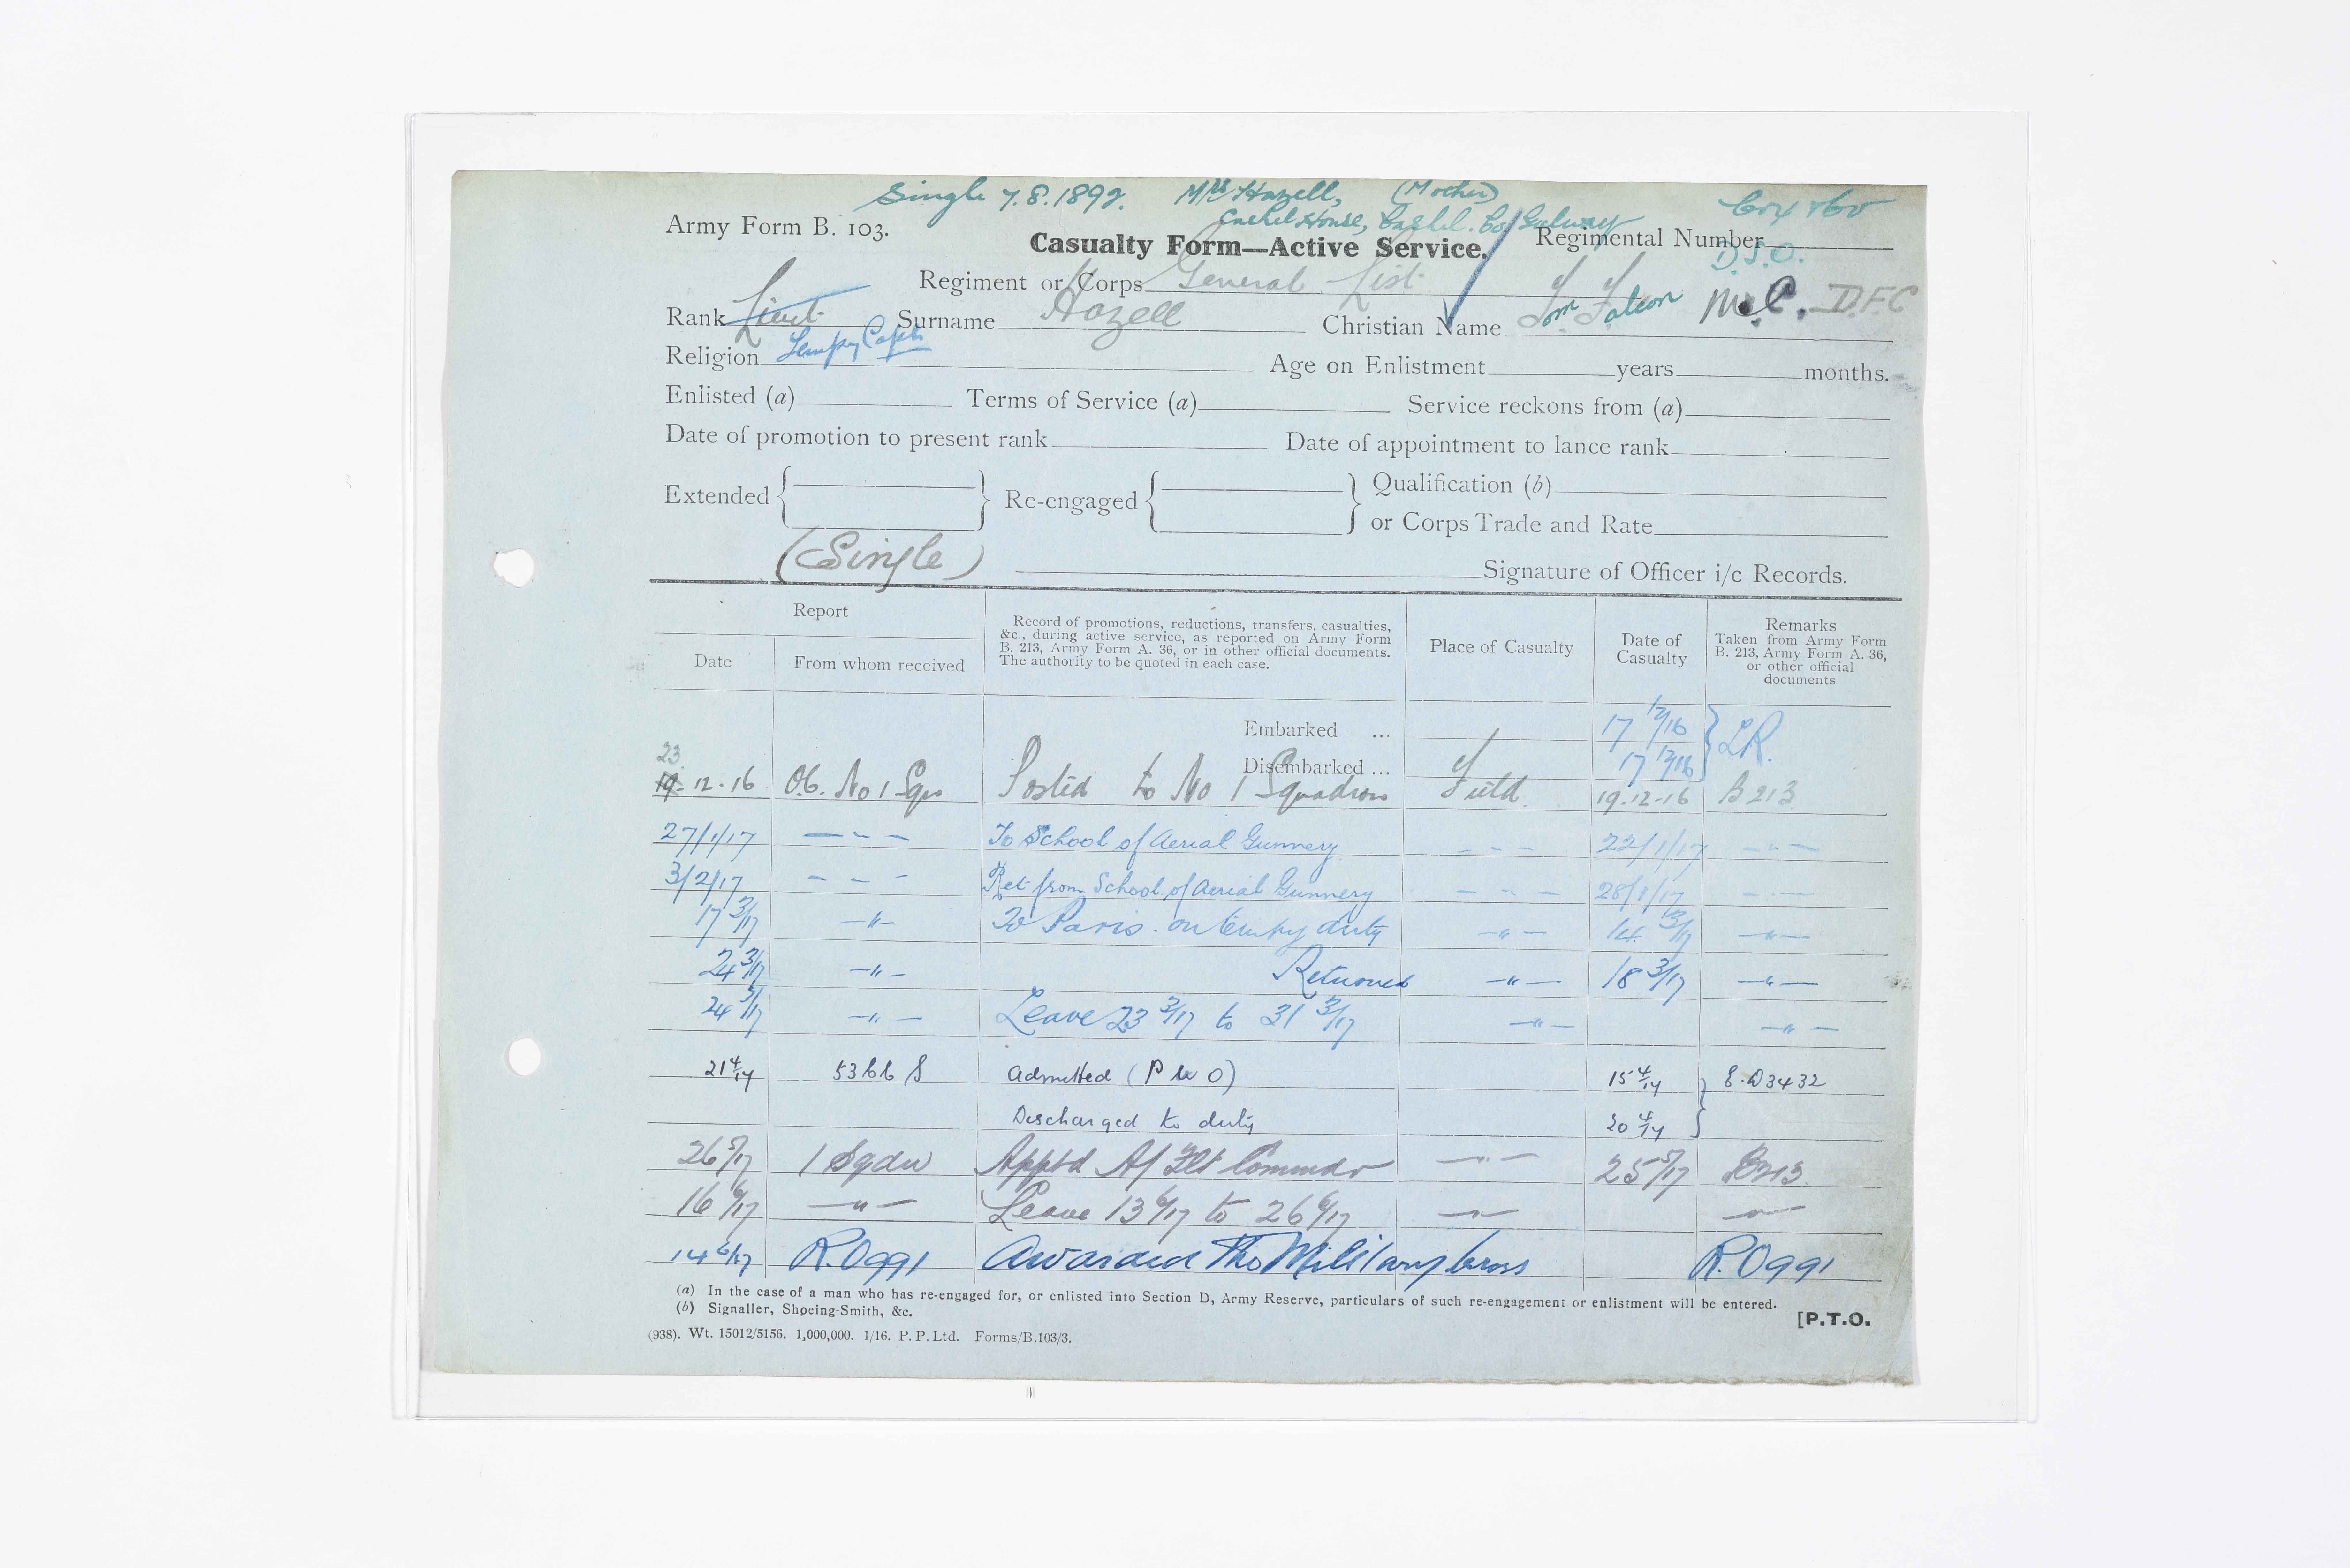 Single 7.8.1892. Mrs Hazell, (Mother) Cox & Co
Cashel House, Cashel. Co Galway
Army Form B. 103.
Casualty Form—Active Service.
Regimental Number
D.S.O.
Regiment or Corps General List
Rank Lieut Surname Hazell Christian Name T F Tom Falcon M.C. D.F.C
Religion Tempy Capt
Age on Enlistment years months.
Enlisted (a) Terms of Service (a) Service reckons from (a)
Date of promotion to present rank Date of appointment to lance rank
Extended Re-engaged Qualification (b)
or Corps Trade and Rate
(Single) Signature of Officer i/c Records.
Report
Date From whom received
Record of promotions, reductions, transfers, casualties,
&c., during active service, as reported on Army Form
B. 213, Army Form A. 36, or in other official documents.
The authority to be quoted in each case.
Place of Casualty
Date of
Casualty
Remarks
Taken from Army Form
B. 213, Army Form A. 36,
or other official
documents
Embarked ... 17 12/16 LR.
Disembarked ... 17 12/16
23
19-12-16 O.C. No 1 Sqn Posted to No 1 Squadron Field 19.12.16 B213
27/1/17 — - — To School of Aerial Gunnery - - - 22/1/17 — - —
3/2/17 - - - Ret from School of Aerial Gunnery — - — 28/1/17 — - —
17 3/17 —"— To Paris. on tempy duty —"— 14 3/17 —"—
24 3/17 —"— Returned —"— 18 3/17 —"—
24 3/17 —"— Leave 23 3/17 to 31 3/17 —"— —"—
21 4/17 53 CCS Admitted (P U O) 15 4/17 E.D3432
Discharged to duty 20 4/17
26 5/17 1 Sqdn Apptd A/ Flt Commdr —"— 25 5/17 B213
16 6/17 —"— Leave 13 6/17 to 26 6/17 —"— —"—
14 6/17 R.O991 Awarded The Military Cross R.O991
(a) In the case of a man who has re-engaged for, or enlisted into Section D, Army Reserve, particulars of such re-engagement or enlistment will be entered.
(b) Signaller, Shoeing-Smith, &c.
[P.T.O.
(938). Wt. 15012/5156. 1,000,000. 1/16. P. P. Ltd. Forms/B.103/3.